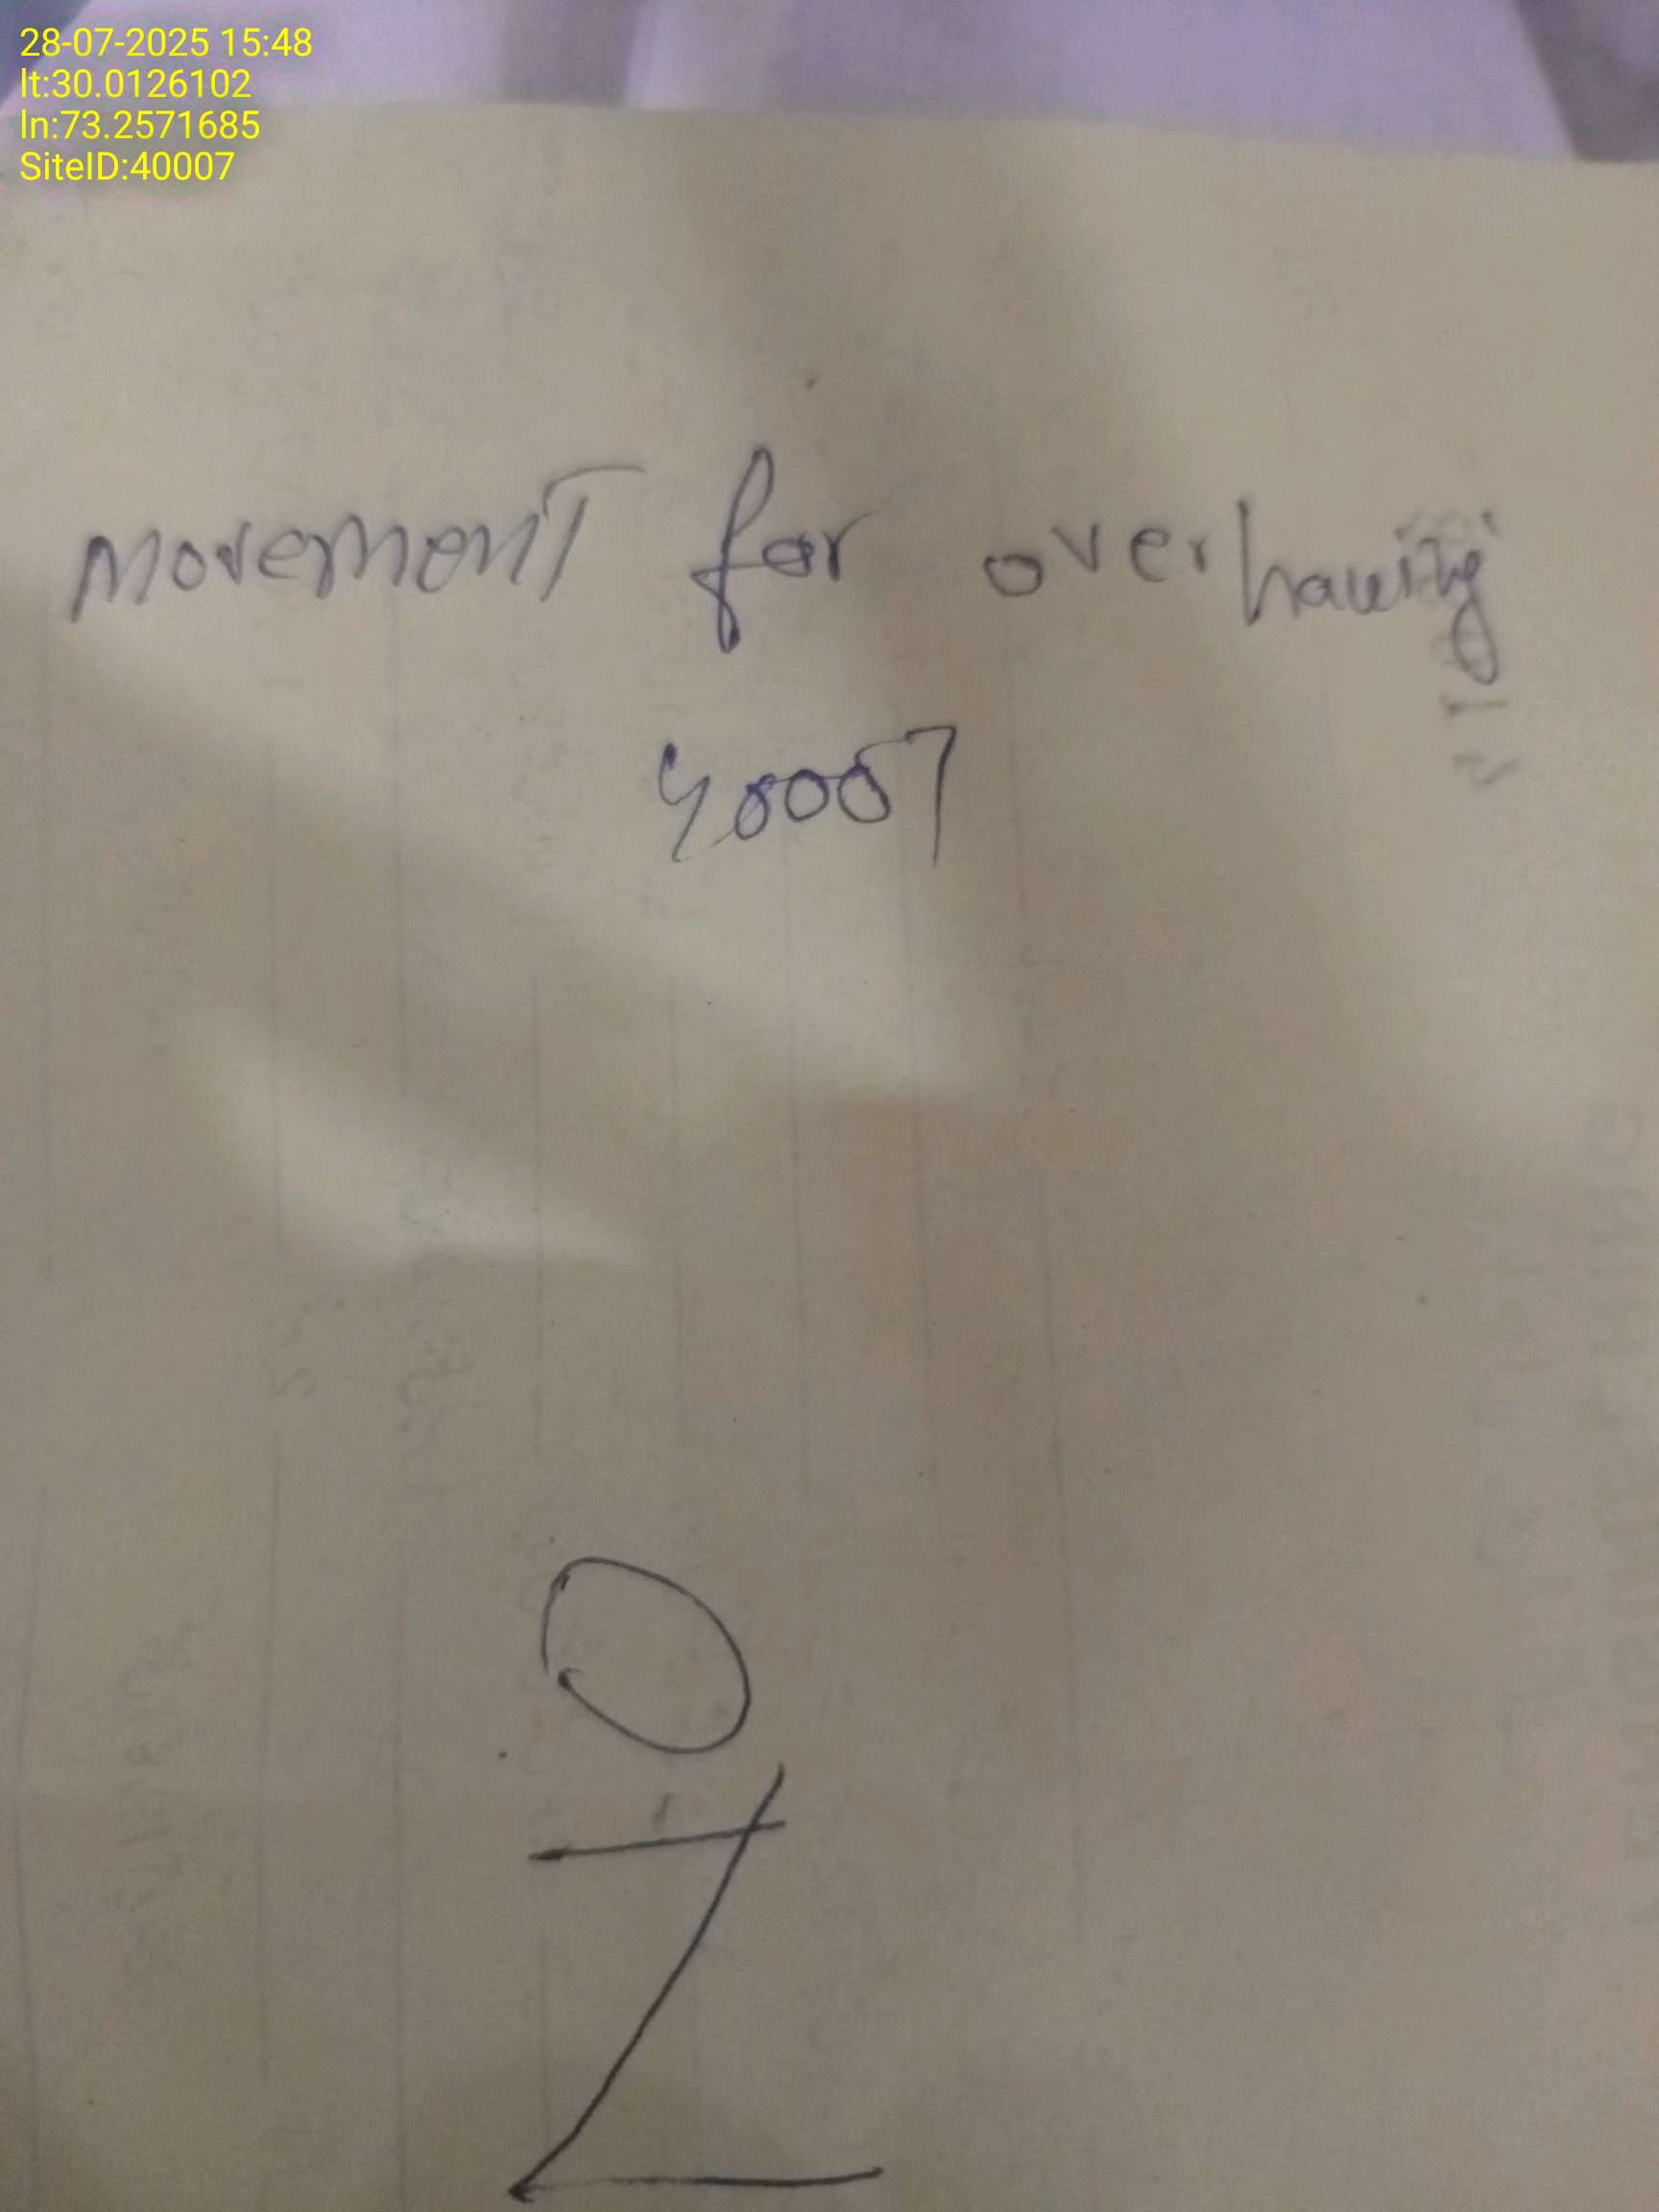 28-07-2025 15:48
lt:30.0126102
ln:73.2571685
SiteID:40007
Movement for over hauling
40007